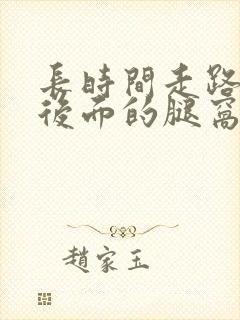 長時間走路
後面的腿窩
趙家玉